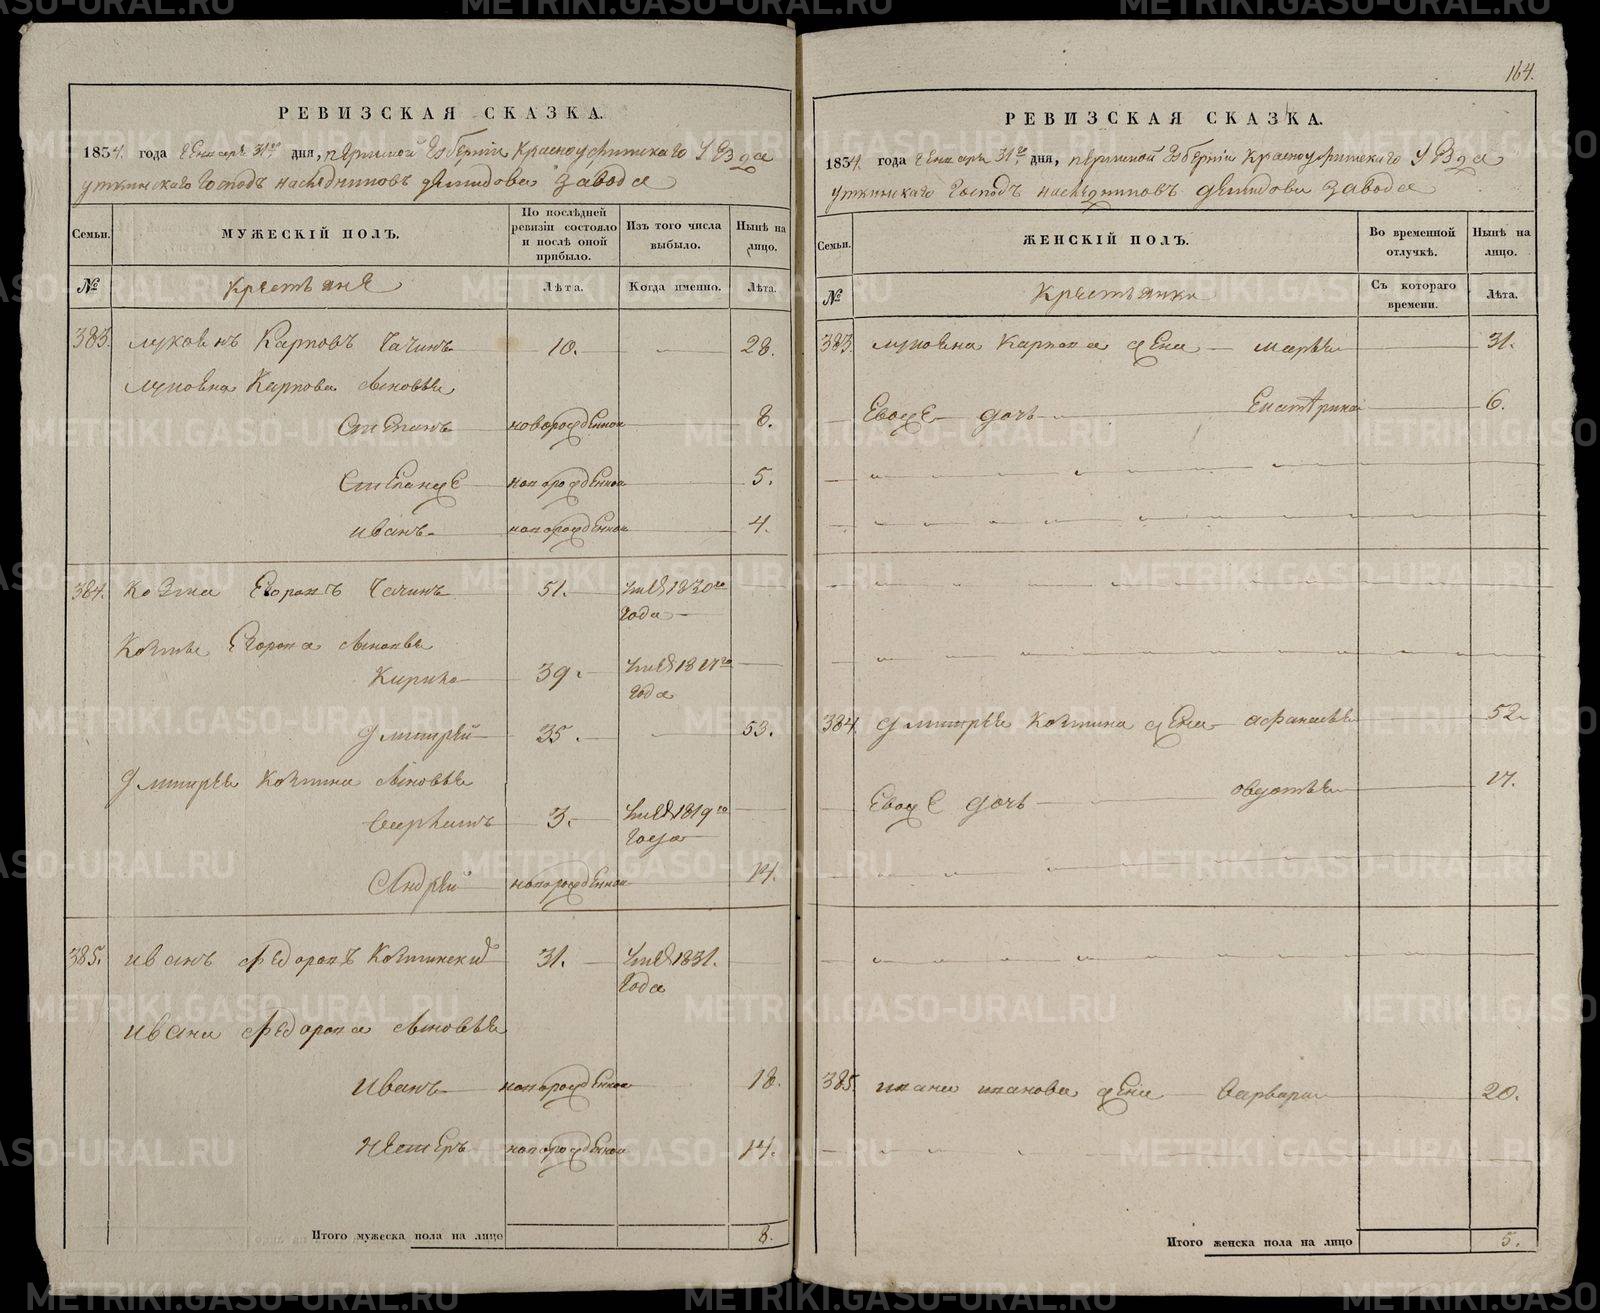 164.
РЕВИЗСКАЯ СКАЗКА.
1834. года Генваря 31го дня, пермской Губерніи Красноуфимскаго уезда
уткинскаго Господъ наследниковъ демидова завода
Семьи.
МУЖЕСКІЙ ПОЛЪ.
По послѣдней ревизіи состояло и послѣ оной прибыло.
Изъ того числа выбыло.
Нынѣ на лицо.
№
Крестьяне
Лѣта.
Когда именно.
Лѣта.
383. Карповъ 10. 28.
Карпова сыновья
новорожденной 8.
новорожденной 5.
иванъ новорожденной 4.
384. Козма Егоровъ 51. 1830го
года
Козмы Егорова сыновья
39. 18
года
Дмитрей 35. 53.
Дмитрея Козмина сыновья
3. 1819го
года
Андрей новорожденной 14.
385. иванъ Федоровъ 31. 1831.
года
ивана Федорова сыновья
иванъ новорожденной 18.
Нестеръ новорожденной 14.
Итого мужеска пола на лицо 8.
РЕВИЗСКАЯ СКАЗКА.
1834 года Генваря 31го дня, пермской Губерніи Красноуфимскаго уезда
уткинскаго Господъ наследниковъ демидова завода
Семьи.
ЖЕНСКІЙ ПОЛЪ.
Во временной отлучкѣ.
Нынѣ на лицо.
№
Крестьянки
Съ котораго времени.
Лѣта.
383. Карпова жена марья 31.
Евоже дочь Екатерина 6.
384. Дмитрея Козмина жена афанасья 52.
Евоже дочь 17.
385. ивана иванова жена варвара 20.
Итого женска пола на лицо 5.
METRIKI.GASO-URAL.RU